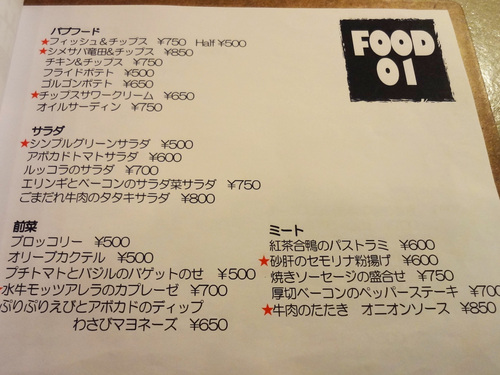 FOOD
01
パブフード
★フィッシュ&チップス ¥750 Half ¥500
★シメサバ竜田&チップス ¥850
チキン&チップス ¥750
フライドポテト ¥500
ゴルゴンポテト ¥650
★チップスサワークリーム ¥650
オイルサーディン ¥750
サラダ
★シンプルグリーンサラダ ¥500
アボカドトマトサラダ ¥600
ルッコラのサラダ ¥700
エリンギとベーコンのサラダ菜サラダ ¥750
ごまだれ牛肉のタタキサラダ ¥800
前菜
ブロッコリー ¥500
オリーブカクテル ¥500
プチトマトとバジルのバゲットのせ ¥500
★水牛モッツアレラのカプレーゼ ¥700
ぷりぷりえびとアボカドのディップ
わさびマヨネーズ ¥650
ミート
紅茶合鴨のパストラミ ¥600
★砂肝のセモリナ粉揚げ ¥600
焼きソーセージの盛合せ ¥750
厚切ベーコンのペッパーステーキ ¥700
★牛肉のたたき オニオンソース ¥850